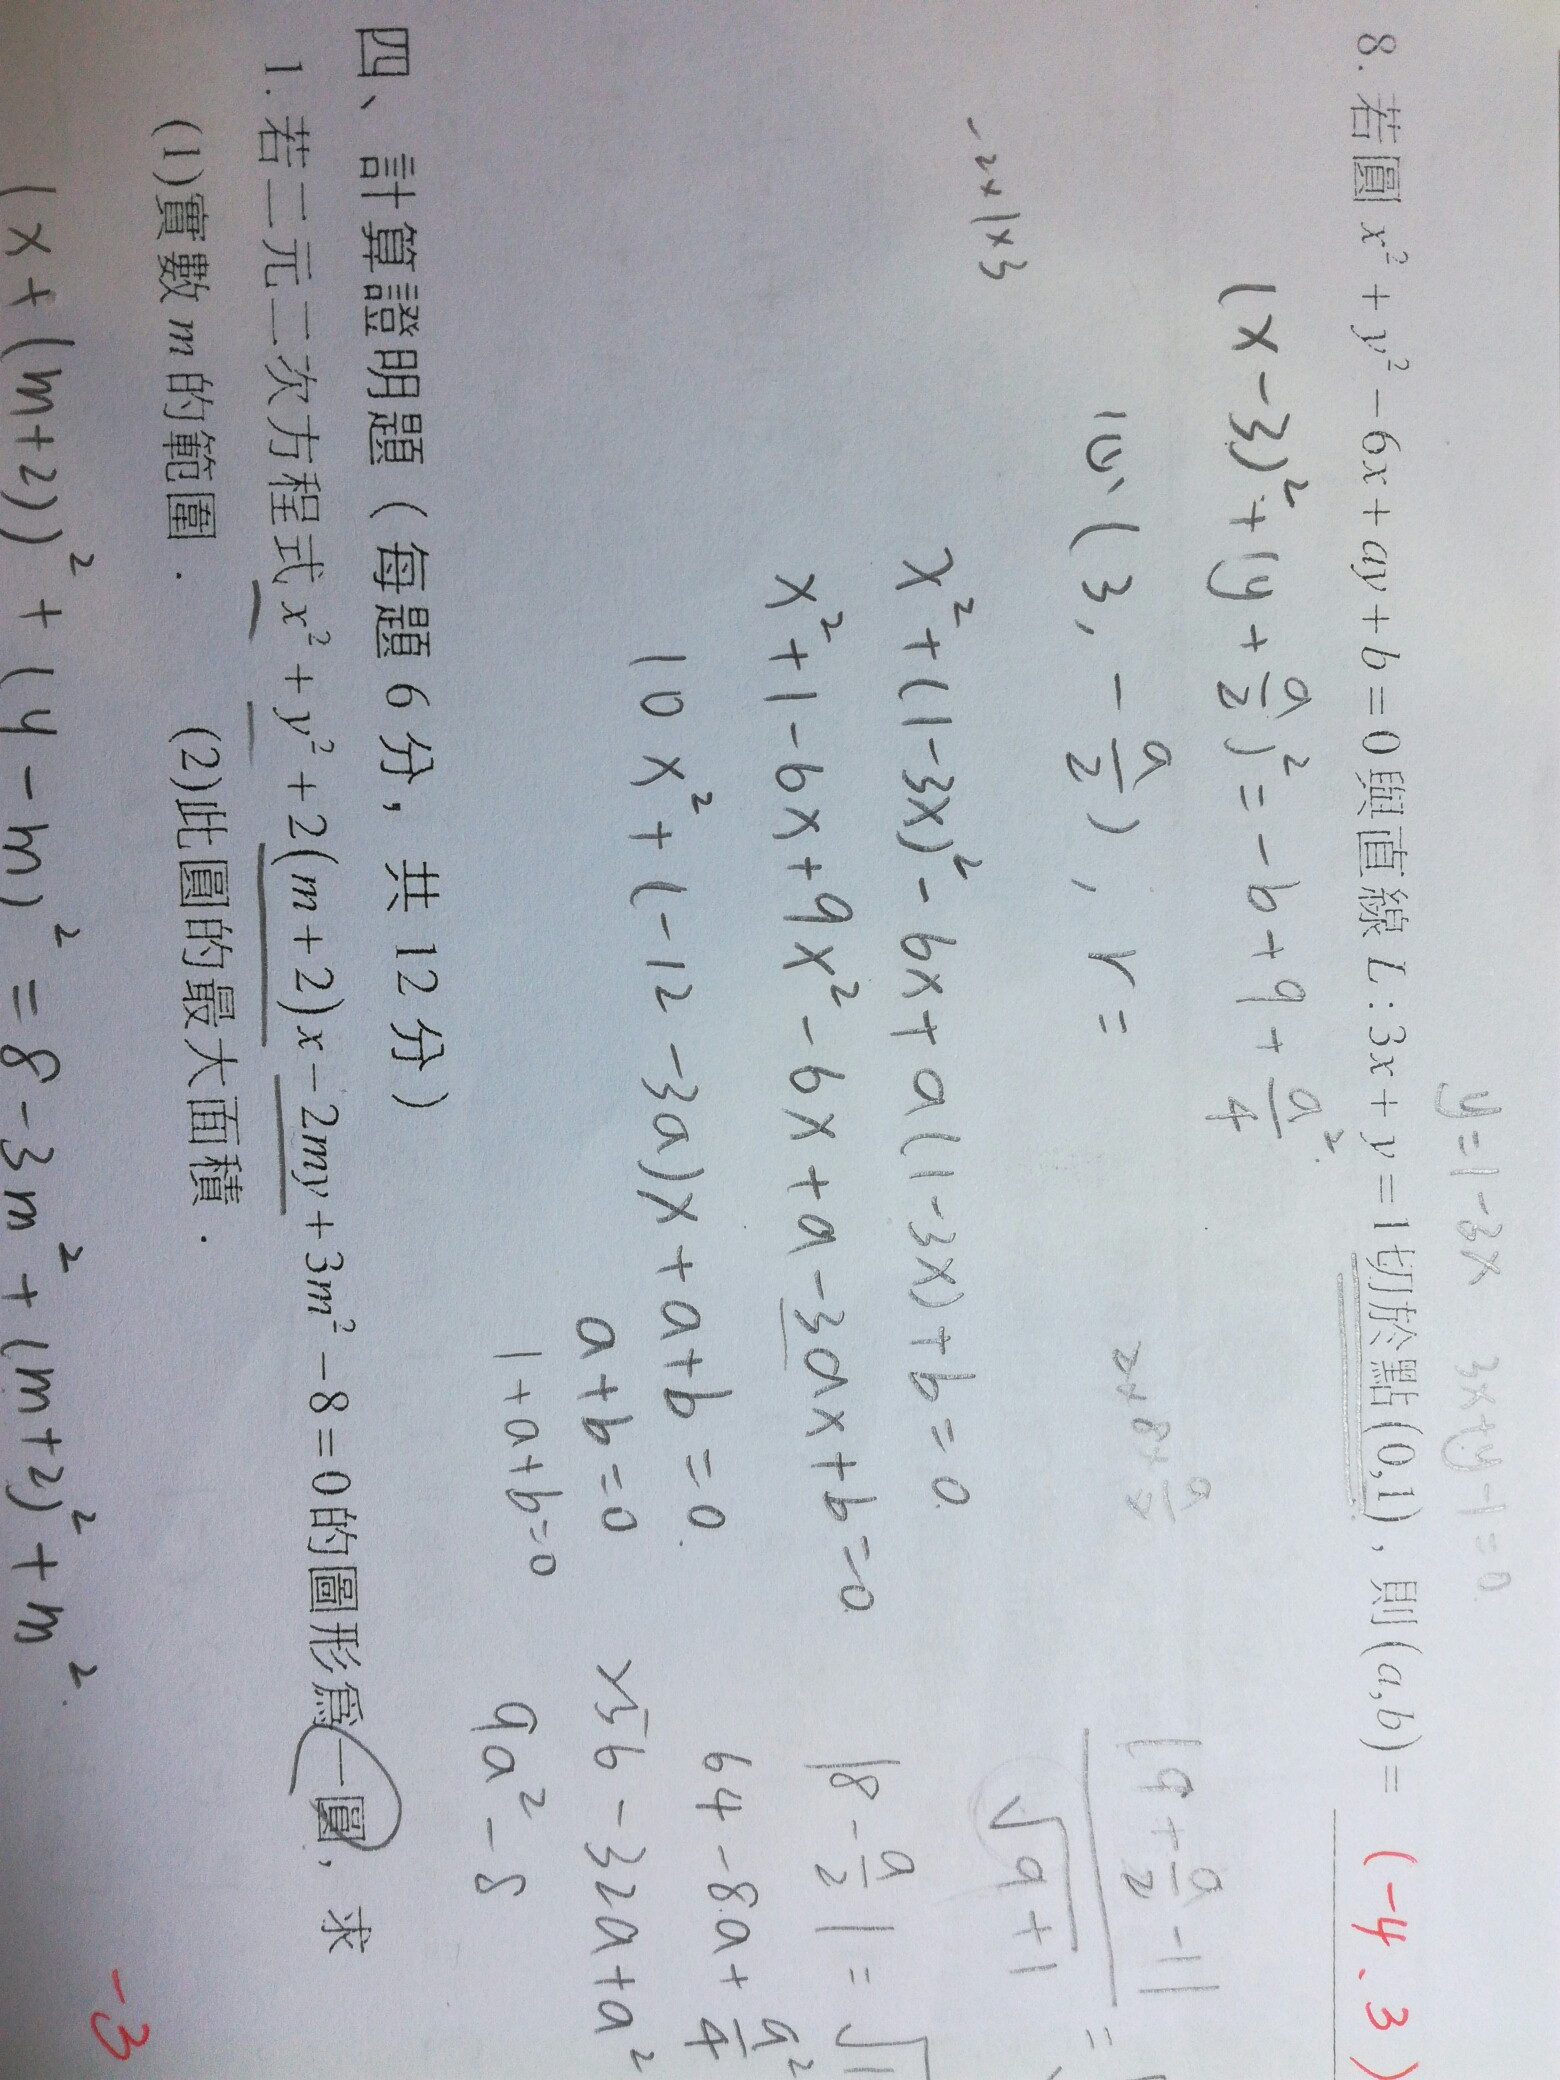 y=1-3x 3x+y-1=0
8. 若圓 x²+y²-6x+ay+b=0 與直線 L:3x+y=1 切於點(0,1)，則(a,b)= (-4.3)
(x-3)²+(y+a/2)²=-b+9+a²/4
圓心(3,-a/2), r=
|9+a/2-1|
√9+1 =
-2×1×3
x²+(1-3x)²-6x+a(1-3x)+b=0
x²+1-6x+9x²-6x+a-3ax+b=0
10x²+(-12-3a)x+a+b=0
a+b=0
1+a+b=0
|8-a/2|=√1
64-8a+a²/4
256-32a+a²
9a²-8
四、計算證明題（每題 6 分，共 12 分）
1. 若二元二次方程式 x²+y²+2(m+2)x-2my+3m²-8=0 的圖形為一圓，求
(1)實數 m 的範圍． (2)此圓的最大面積．
-3
(x+(m+2))²+(y-m)²=8-3m²+(m+2)²+m²